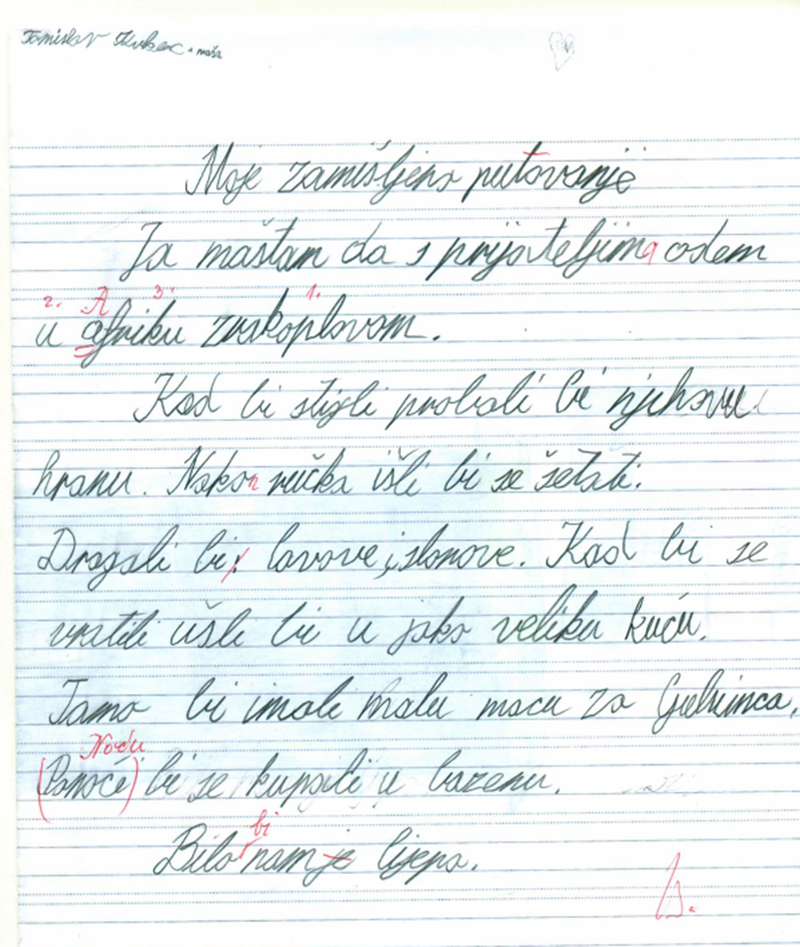 Tomislav Kukec
Moje zamišljeno putovanje
Ja maštam da s prijateljima odem
2. A 3. 1.
u afriku zrakoplovom.
Kad bi stigli probali bi njihovu
hranu. Nakon ručka išli bi se šetati.
Dragali bi lavove, i slonove. Kad bi se
vratili ušli bi u jako veliku kuću.
Tamo bi imali malu macu za ljubimca.
Noću
(Ponoći) bi se kupali u bazenu.
bi
Bilo nam je lijepo.